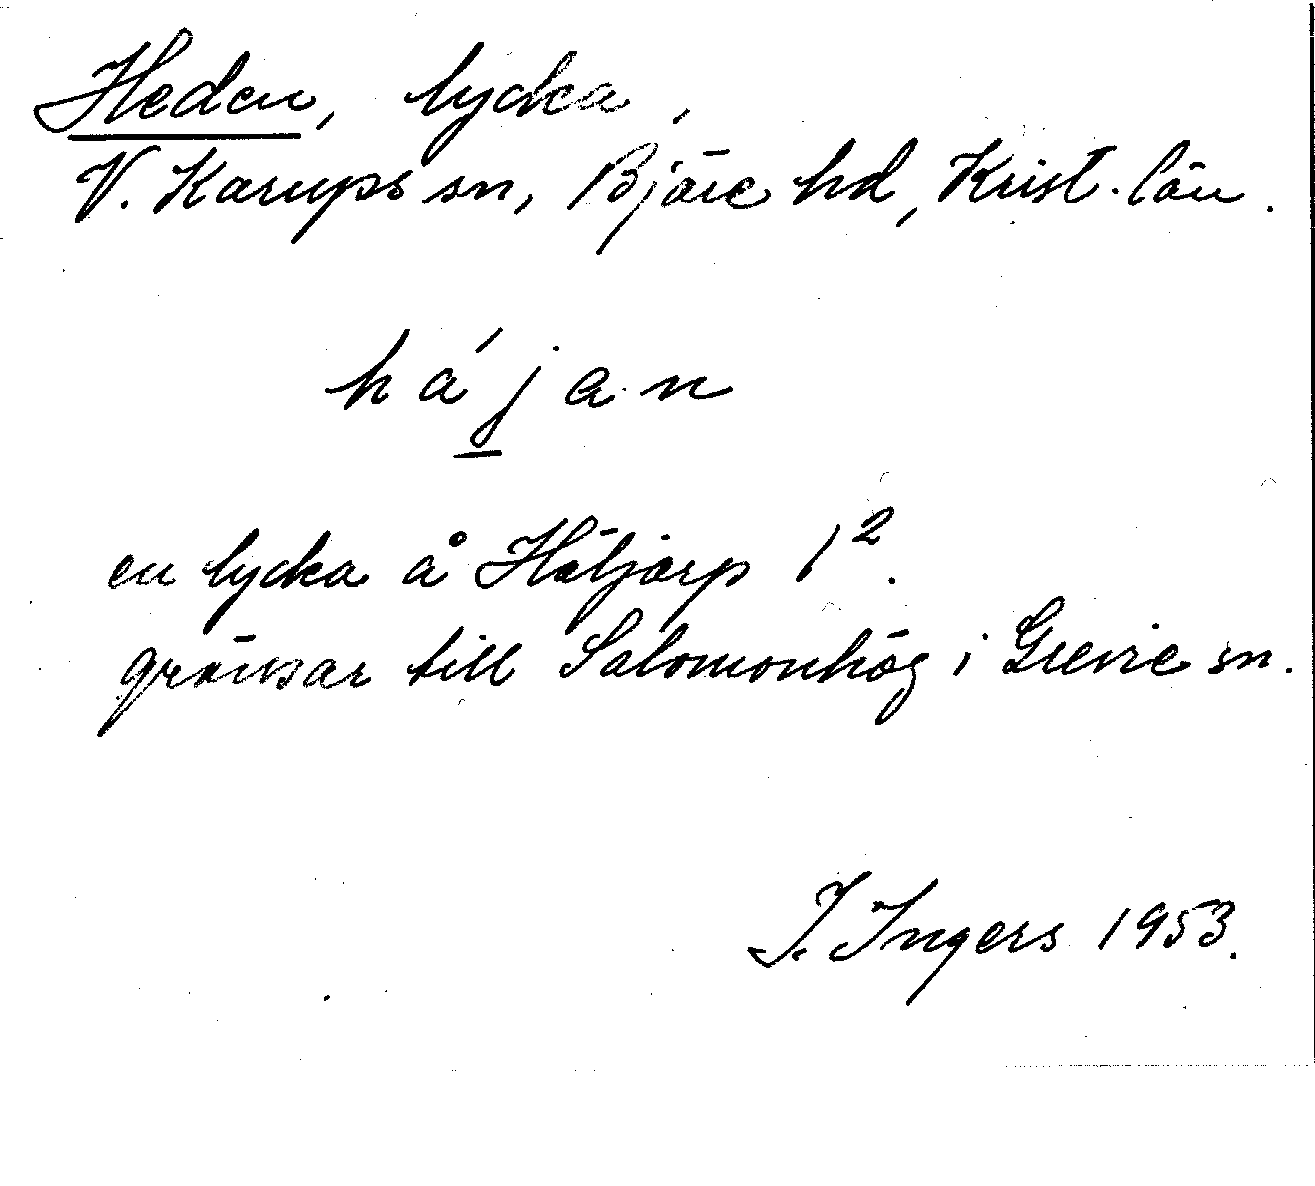 Heden, lycka,
V. Karups sn, Bjäre hd, Krist. län.
hájan
en lycka å Häljarp 1².
gränsar till Salomonhög i Grevie sn.
I. Ingers 1953.